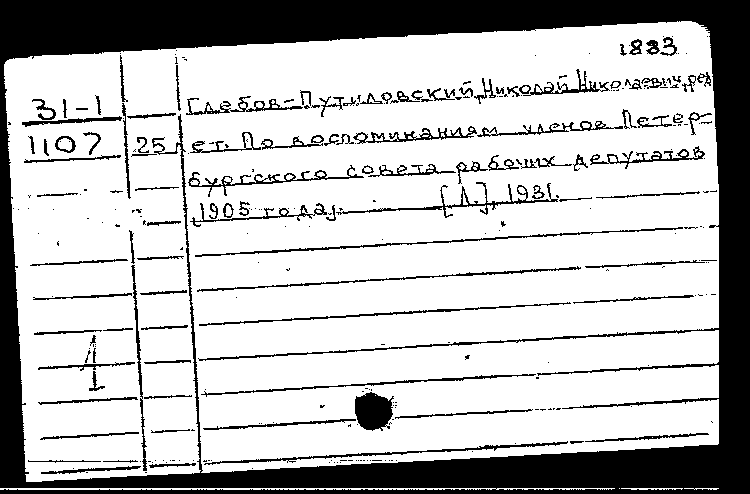 1883
31-1
1107
Глебов-Путиловский, Николай Николаевич, ред.
25 лет. По воспоминаниям членов Петер-
бургского совета рабочих депутатов
1905 года. [Л.], 1931.
1